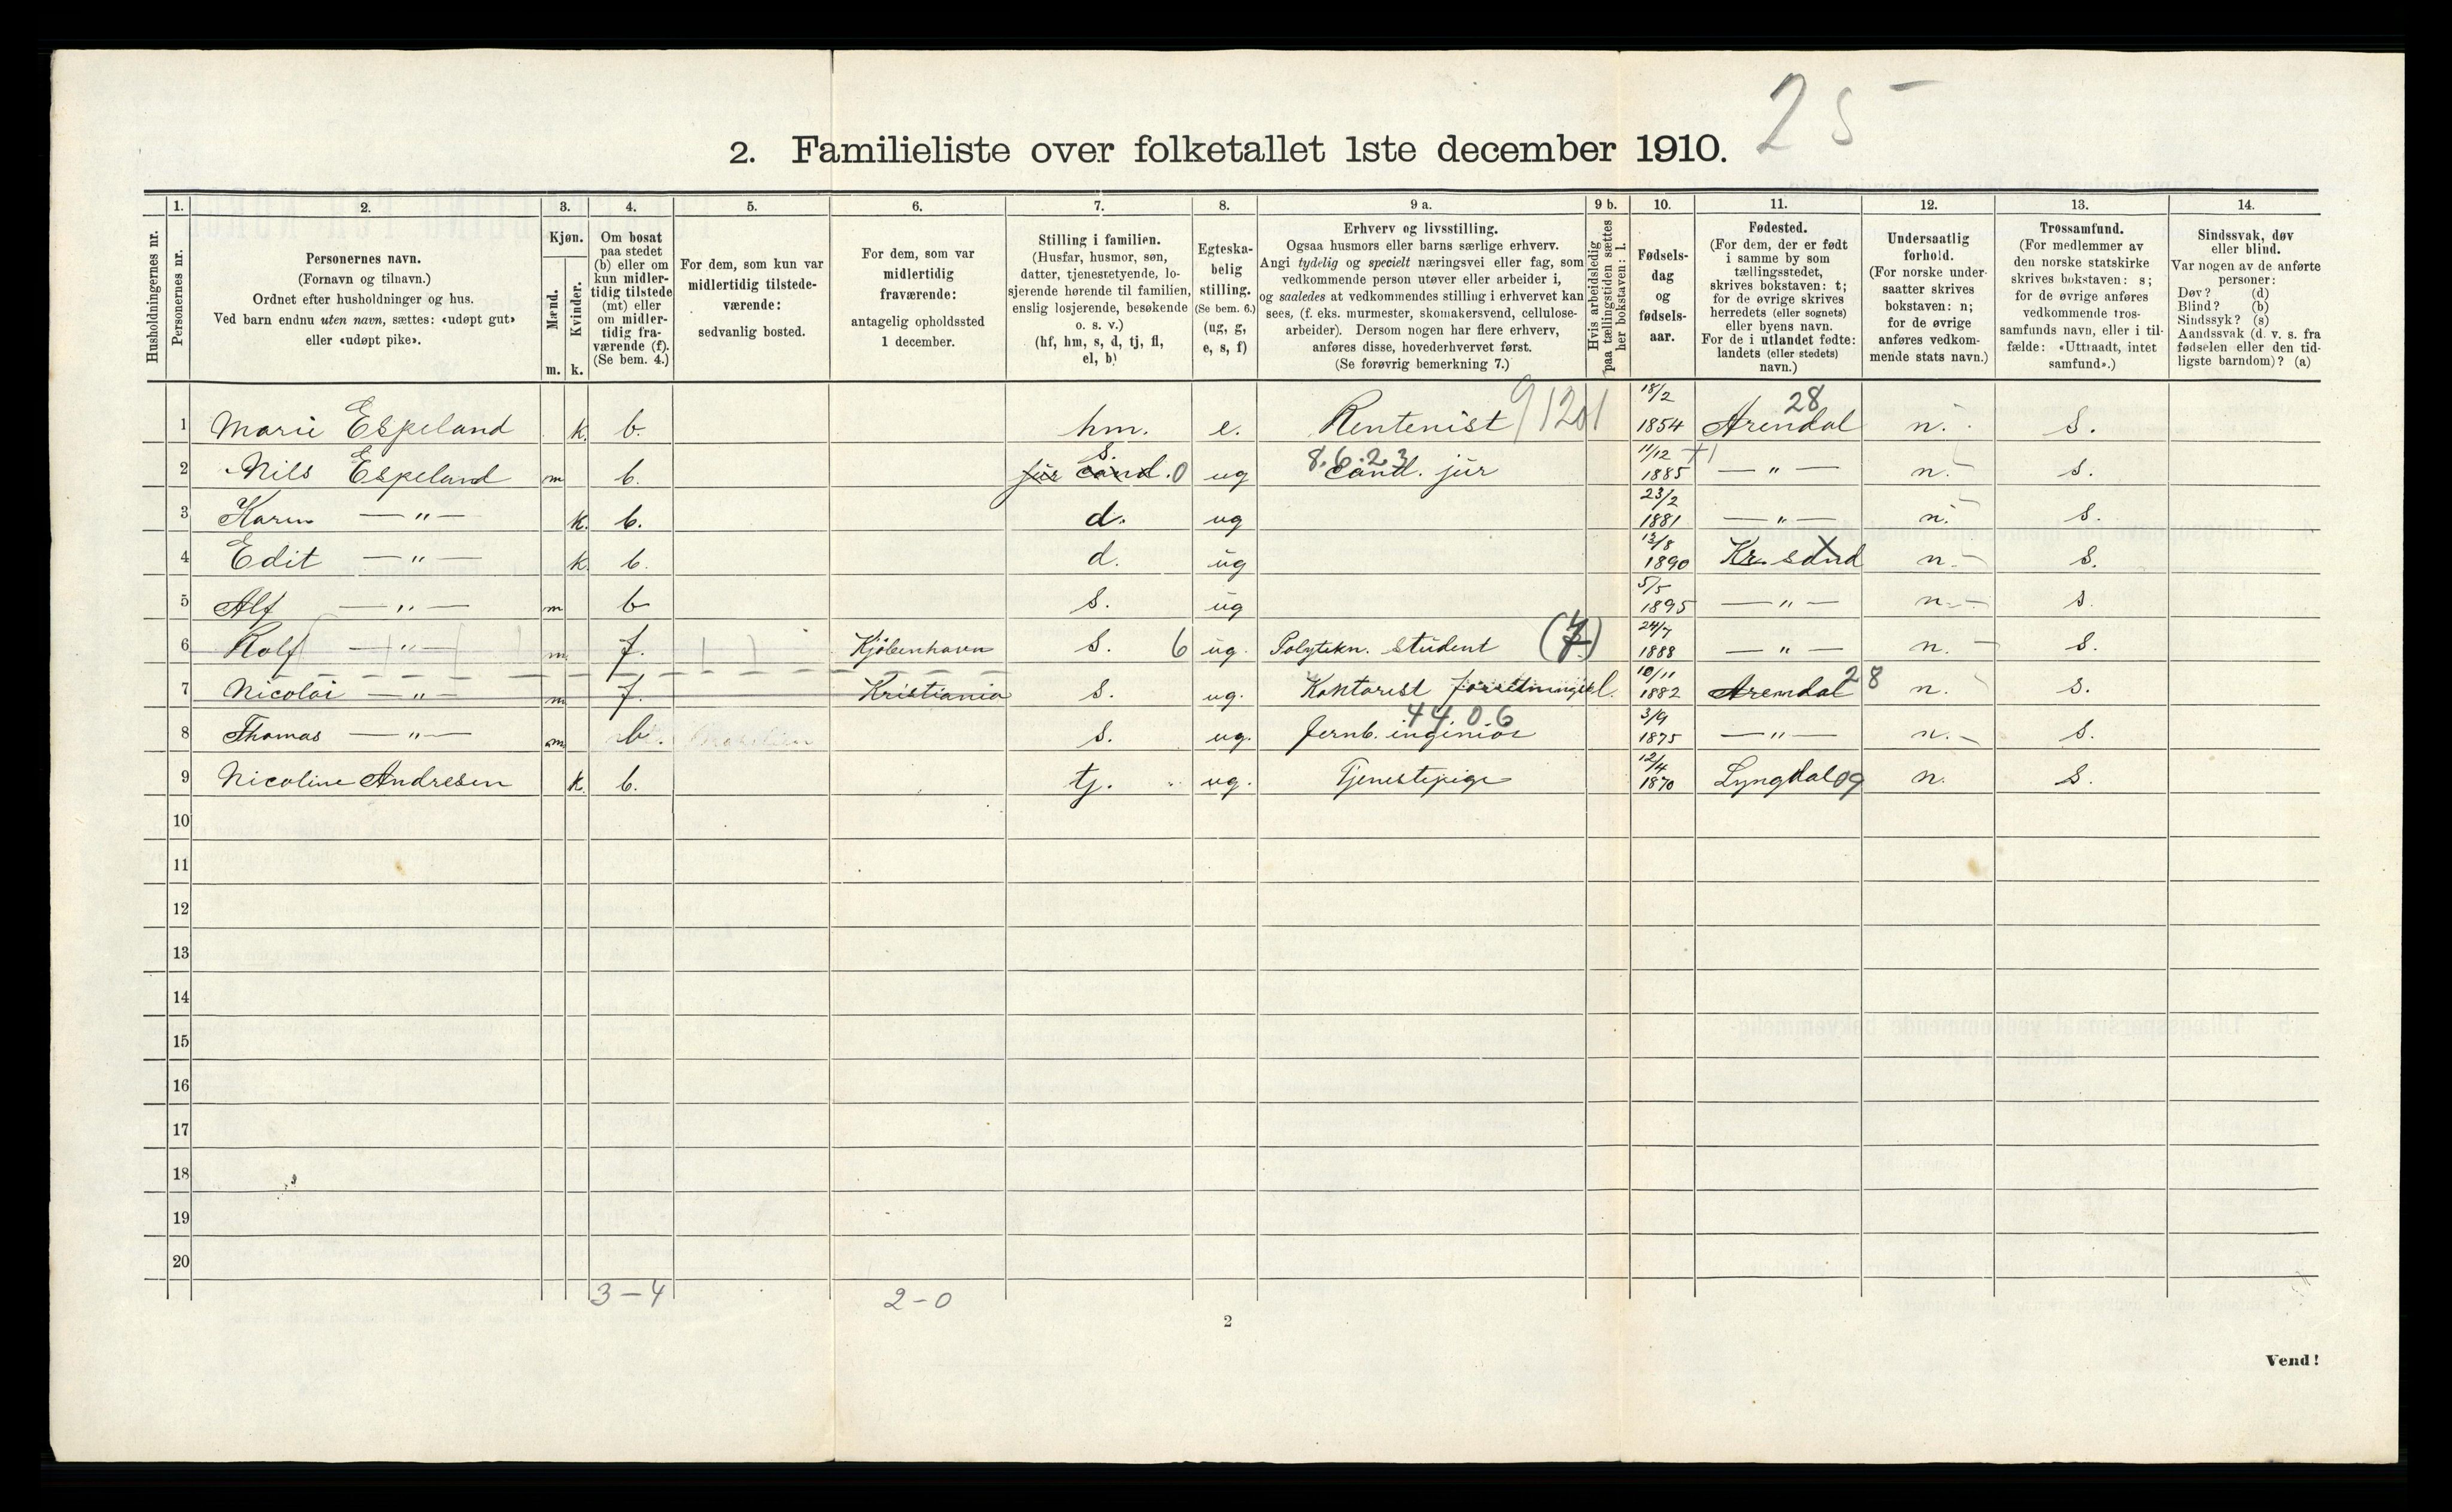 25
2. Familieliste over folketallet 1ste december 1910.
1. 2. 3. 4. 5. 6. 7. 8. 9 a. 9 b. 10. 11. 12. 13. 14.
Husholdningernes nr.
Personernes nr.
Personernes navn.
(Fornavn og tilnavn.)
Ordnet efter husholdninger og hus.
Ved barn endnu uten navn, sættes: «udøpt gut»
eller «udøpt pike».
Kjøn.
Mænd.
Kvinder.
m. k.
Om bosat
paa stedet
(b) eller om
kun midler-
tidig tilstede
(mt) eller
om midler-
tidig fra-
værende (f).
(Se bem. 4.)
For dem, som kun var
midlertidig tilstede-
værende:
sedvanlig bosted.
For dem, som var
midlertidig
fraværende:
antagelig opholdssted
1 december.
Stilling i familien.
(Husfar, husmor, søn,
datter, tjenestetyende, lo-
sjerende hørende til familien,
enslig losjerende, besøkende
o. s. v.)
(hf, hm, s, d, tj, fl,
el, b)
Egteska-
belig
stilling.
(Se bem. 6.)
(ug, g,
e, s, f)
Erhverv og livsstilling.
Ogsaa husmors eller barns særlige erhverv.
Angi tydelig og specielt næringsvei eller fag, som
vedkommende person utøver eller arbeider i,
og saaledes at vedkommendes stilling i erhvervet kan
sees, (f. eks. murmester, skomakersvend, cellulose-
arbeider). Dersom nogen har flere erhverv,
anføres disse, hovederhvervet først.
(Se forøvrig bemerkning 7.)
Hvis arbeidsledig
paa tællingstiden sættes
her bokstaven: l.
Fødsels-
dag
og
fødsels-
aar.
Fødested.
(For dem, der er født
i samme by som
tællingsstedet,
skrives bokstaven: t;
for de øvrige skrives
herredets (eller sognets)
eller byens navn.
For de i utlandet fødte:
landets (eller stedets)
navn.)
Undersaatlig
forhold.
(For norske under-
saatter skrives
bokstaven: n;
for de øvrige
anføres vedkom-
mende stats navn.)
Trossamfund.
(For medlemmer av
den norske statskirke
skrives bokstaven: s;
for de øvrige anføres
vedkommende tros-
samfunds navn, eller i til-
fælde: «Uttraadt, intet
samfund».)
Sindssvak, døv
eller blind.
Var nogen av de anførte
personer:
Døv? (d)
Blind? (b)
Sindssyk? (s)
Aandssvak (d. v. s. fra
fødselen eller den tid-
ligste barndom)? (a)
1 Marie Espeland k. b. hm. e. Rentenist 18/2 1854 Arendal 28 n. s.
2 Nils Espeland m b. jur cand. s. 0 ug 8.6.2.3 cand. jur 11/12 1885 — " — n. s.
3 Karen — " — k. b. d. ug 23/2 1881 — " — n. s.
4 Edit — " — k. b. d. ug 1890 Kr.sand n. s.
5 Alf — " — m b s. ug 5/5 1895 — " — n. s.
6 Rolf — " — m f. Kjöbenhavn s. 6 ug. Polytekn. student 24/7 1888 — " — n. s.
7 Nicolai — " — m f. Kristiania s. ug. Kontorist 10/11 1882 Arendal 28 n. s.
8 Thomas — " — m b. s. ug. Jernb. ingeniör 44.06 3/9 1875 — " — n. s.
9 Nicoline Andresen k. b. tj. ug. Tjenestepige 12/4 1870 Lyngdal 09 n. s.
10
11
12
13
14
15
16
17
18
19
20
3 – 4
2 – 0
2
Vend!